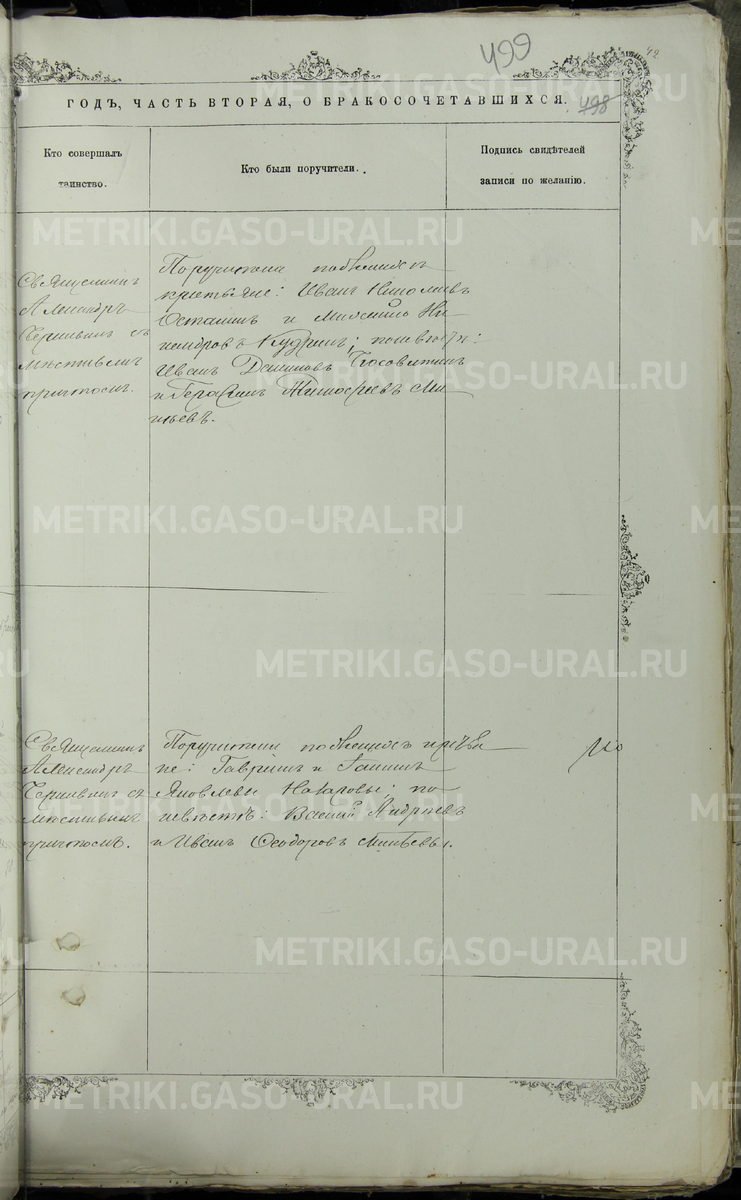 499
42
ГОДЪ, ЧАСТЬ ВТОРАЯ, О БРАКОСОЧЕТАВШИХСЯ.
498
Кто совершалъ
таинство.
Кто были поручители.
Подпись свидѣтелей
записи по желанію.
Священникъ
Александръ
съ
мѣстнымъ
причтомъ.
Поручители по женихѣ
крестьяне: Иванъ Николаевъ
Осташинъ и Ни-
Кудринъ; по невѣстѣ:
Иванъ
и Герасимъ Ми-
нѣевъ.
Священникъ
Александръ
съ
мѣстнымъ
причтомъ.
Поручители по женихѣ крестья-
не: Гаврiилъ и
Яковлевы Назаровы; по
невѣстѣ: Василій Андреевъ
и Иванъ Ѳеодоровъ Минѣевы.
METRIKI.GASO-URAL.RU